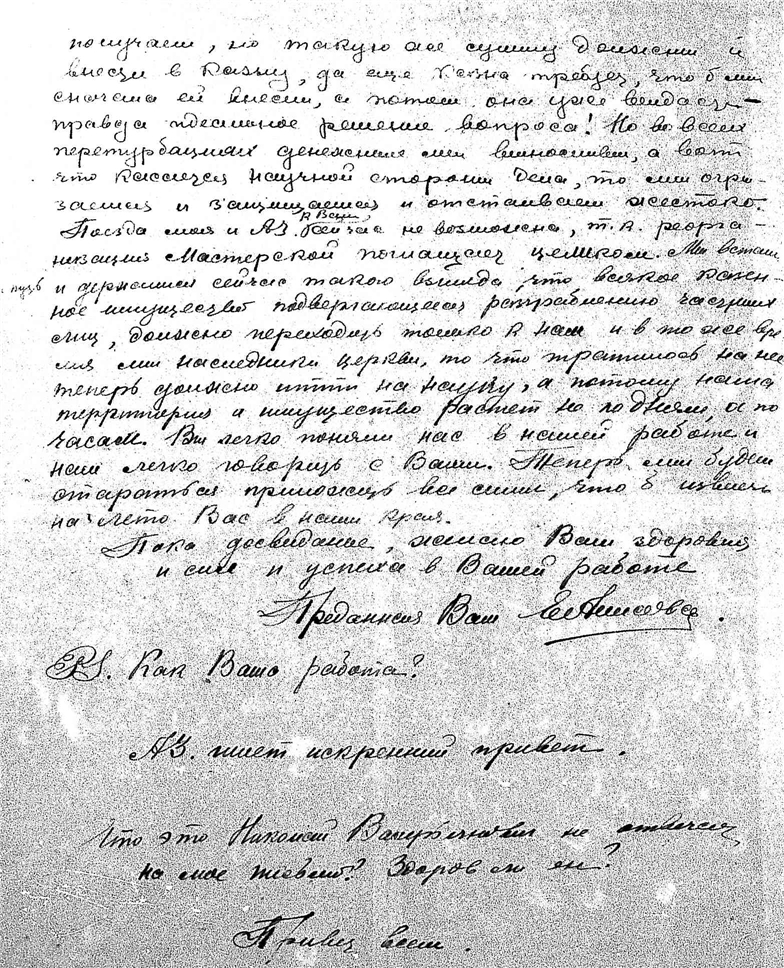 получаем, но такую же сумму должны и
внести в казну, да еще казна требует, чтоб мы
сначала ей внесли, а потом она уже выдаст —
правда идеальное решение вопроса! Но во всех
пертурбациях денежных мы выносливы, а вот
что касается научной стороны дела, то мы огры-
заемся и защищаемся и отстаиваем жестоко.
Поезда моя и АЗ. к Вам сейчас не возможна, т.к. реорга-
низация Мастерской поглощает целиком. Мы встали
на путь и держимся сейчас такого взгляда, что всякое казен-
ное имущество подвергающееся разграблению частных
лиц, должно переходить только к нам и в то же вре
мя мы наследники церкви, то что тратилось на нее
теперь должно итти на науку, а потому наша
территория и имущество растет не по дням, а по
часам. Вы легко поняли нас в нашей работе и
нам легко говорить с Вами. Теперь мы будем
стараться приложить все силы, что б извлечь
на лето Вас в наши края.
Пока досвидание, желаю Вам здоровия
и сил и успеха в Вашей работе
Преданная Вам
PS. Как Ваша работа?
АЗ. шлет искренний привет.
Что это Николай Валерьянович не отвечает
на мое письмо? Здоров ли он?
Привет всем.